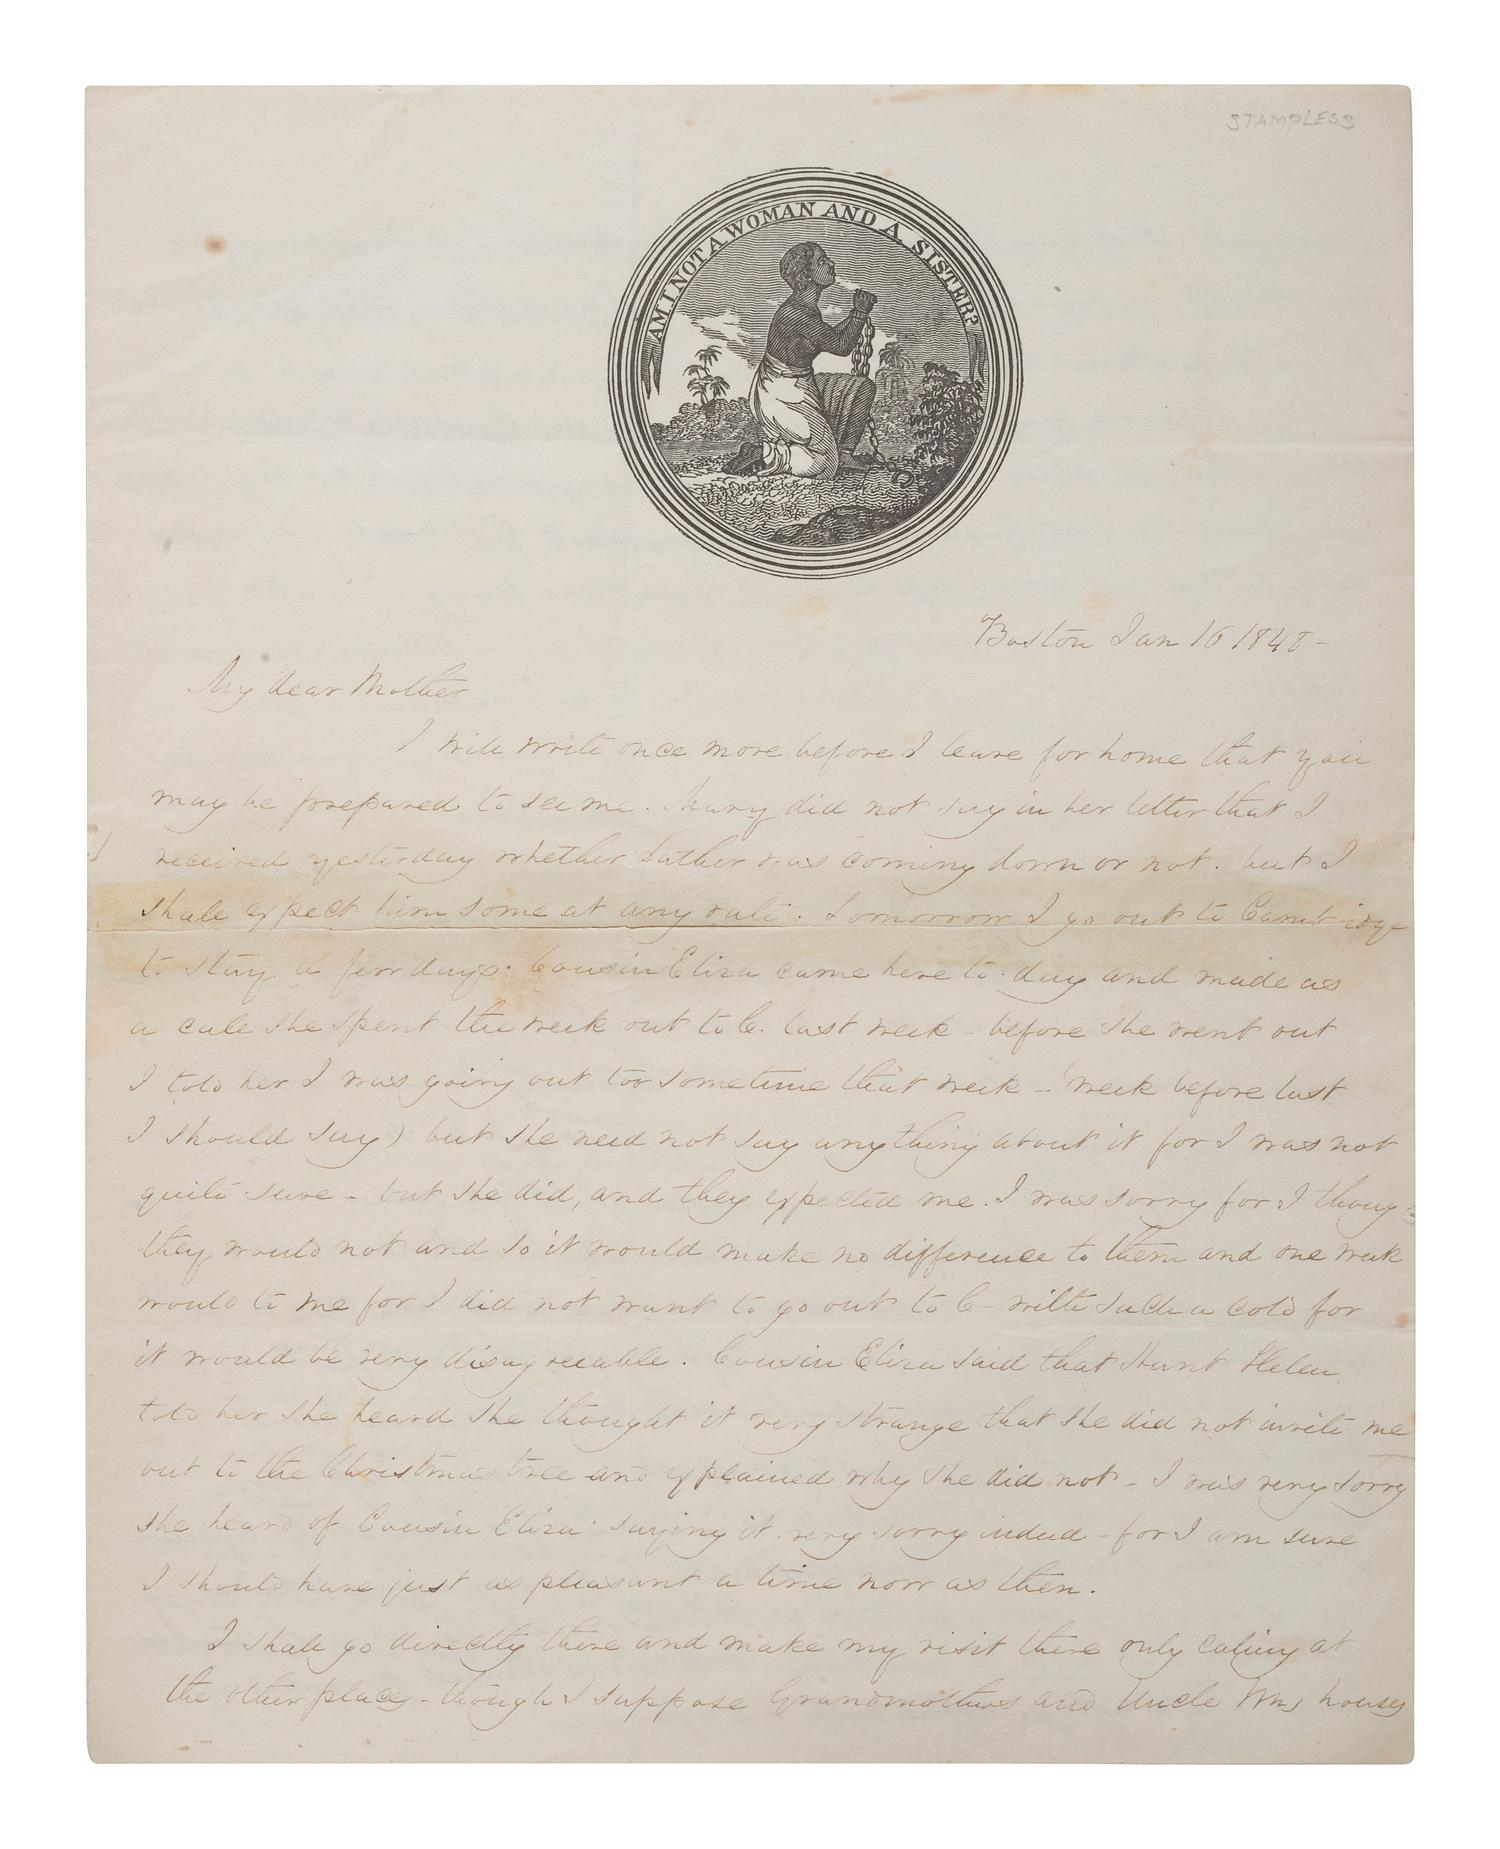 STAMPLESS
AM I NOT A WOMAN AND A SISTER?
Boston Jan 16 1848 -
My dear Mother
I will write once more before I leave for home that you
may be prepared to see me. Mary did not say in her letter that I
received yesterday whether Father was coming down or not. but I
shall expect him some at any rate. Tomorrow I go out to Cambridge
to stay a few days. Cousin Eliza came here to-day and made us
a call she spent the week out to C. last week - before she went out
I told her I was going out too sometime that week - (week before last
I should say) but she need not say anything about it for I was not
quite sure - but she did, and they expected me. I was sorry for I thoug
they would not and so it would make no difference to them and one week
would to me for I did not want to go out to C- with such a cold for
it would be very disagreeable. Cousin Eliza said that Aunt Helen
told her she heard she thought it very strange that she did not invite me
out to the Christmas tree and explained why she did not - I was very sorry
she heard of Cousin Eliza' saying it. very sorry indeed - for I am sure
I should have just as pleasant a time now as then.
I shall go directly there and make my visit there only calling at
the other places - though I suppose Grandmothers and Uncle Wms houses